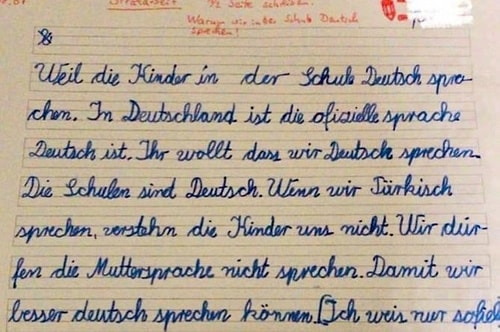 ½ Seite schreiben.
Warum wir in der Schule Deutsch
sprechen!
Weil die Kinder in der Schule Deutsch spre-
chen. In Deutschland ist die ofizielle sprache
Deutsch ist. Ihr wollt dass wir Deutsch sprechen.
Die Schulen sind Deutsch. Wenn wir Türkisch
sprechen, verstehn die Kinder uns nicht. Wir dür-
fen die Muttersprache nicht sprechen. Damit wir
besser deutsch sprechen können. [Ich weis nur sofiel